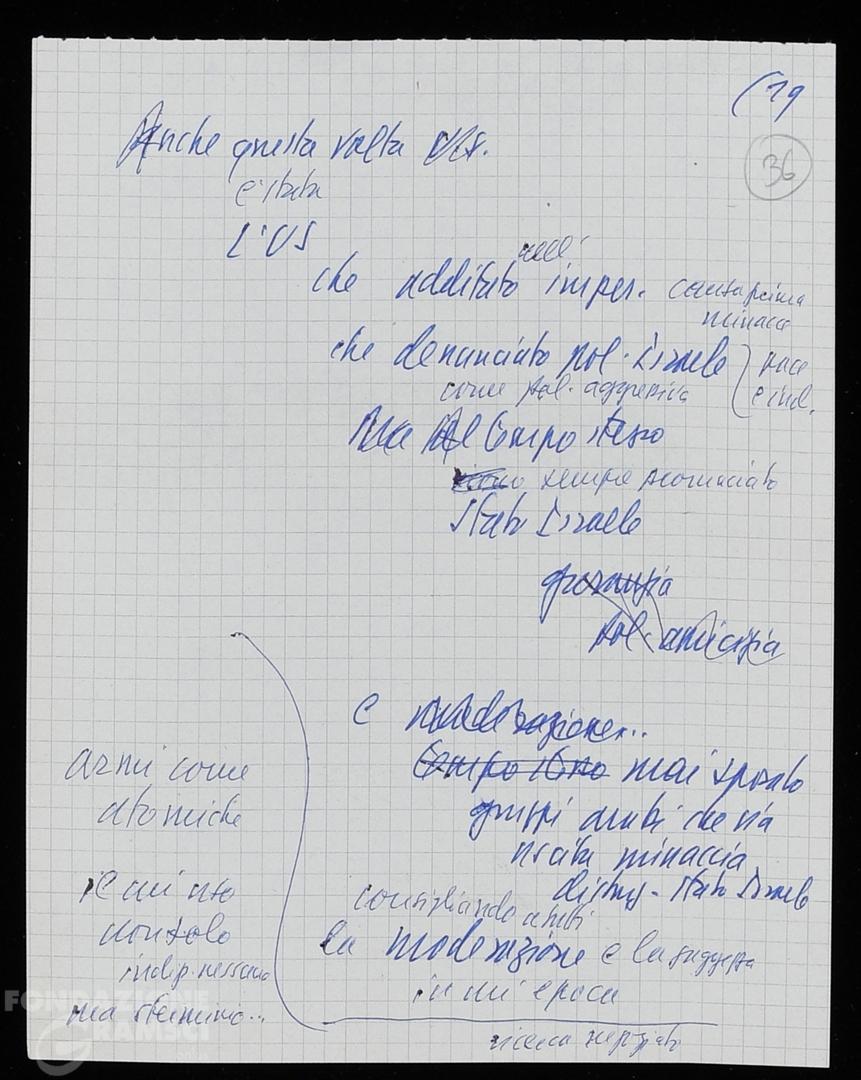 (19
36
Anche questa volta US.
è stata
L'US
nell'
che additato imper. causa prima
minacce
che denunciato pol. Israele
come pol. aggressiva
pace
e ind.
Ma Al tempo stesso
sempre riconosciuto
Stato Israele
garanzia
pol. amicizia
e moderazione...
tempo stesso mai sposato
gruppi arabi che via
uscita minaccia
distrug. Stato Israele
consigliando arabi
la moderazione e la saggezza
in cui epoca
ricerca negoziato
armi come
atomiche
e cui uso
non solo
indip. nessuno
ma sterminio...
FONDAZIONE
GRAMSCI